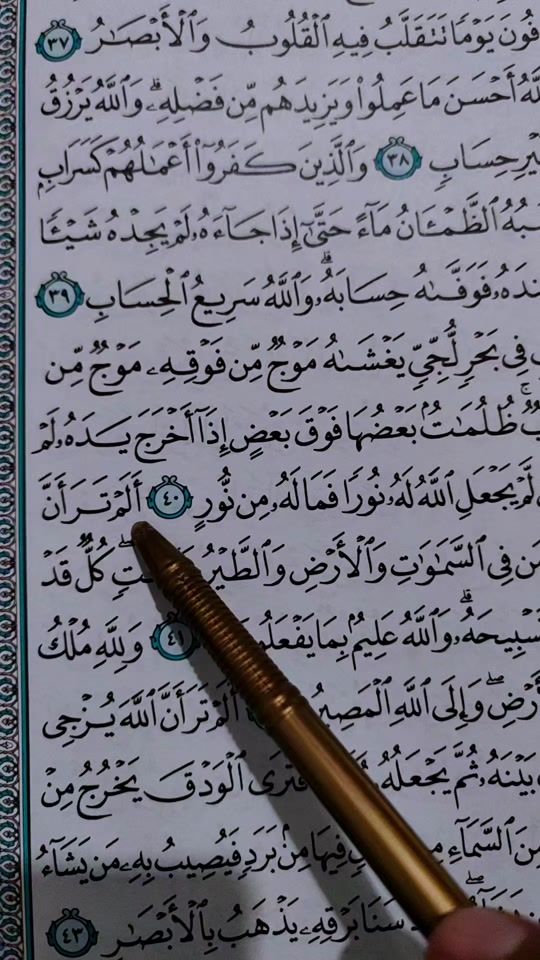 يَوْمًا تَتَقَلَّبُ فِيهِ ٱلْقُلُوبُ وَٱلْأَبْصَـٰرُ ٣٧
أَحْسَنَ مَا عَمِلُوا۟ وَيَزِيدَهُم مِّن فَضْلِهِۦ ۗ وَٱللَّهُ يَرْزُقُ
حِسَابٍ ٣٨ وَٱلَّذِينَ كَفَرُوٓا۟ أَعْمَـٰلُهُمْ كَسَرَابٍۭ
ٱلظَّمْـَٔانُ مَآءً حَتَّىٰٓ إِذَا جَآءَهُۥ لَمْ يَجِدْهُ شَيْـًٔا
فَوَفَّىٰهُ حِسَابَهُۥ ۗ وَٱللَّهُ سَرِيعُ ٱلْحِسَابِ ٣٩
فِى بَحْرٍ لُّجِّىٍّ يَغْشَىٰهُ مَوْجٌ مِّن فَوْقِهِۦ مَوْجٌ مِّن
ظُلُمَـٰتٌۢ بَعْضُهَا فَوْقَ بَعْضٍ إِذَآ أَخْرَجَ يَدَهُۥ لَمْ
لَّمْ يَجْعَلِ ٱللَّهُ لَهُۥ نُورًا فَمَا لَهُۥ مِن نُّورٍ ٤٠ أَلَمْ تَرَ أَنَّ
مَن فِى ٱلسَّمَـٰوَٰتِ وَٱلْأَرْضِ وَٱلطَّيْرُ كُلٌّ قَدْ
وَٱللَّهُ عَلِيمٌۢ بِمَا يَفْعَلُونَ ٤١ وَلِلَّهِ مُلْكُ
وَإِلَى ٱللَّهِ ٱلْمَصِيرُ أَلَمْ تَرَ أَنَّ ٱللَّهَ يُزْجِى
بَيْنَهُۥ ثُمَّ يَجْعَلُهُۥ فَتَرَى ٱلْوَدْقَ يَخْرُجُ مِنْ
مِنَ ٱلسَّمَآءِ فِيهَا مِنۢ بَرَدٍ فَيُصِيبُ بِهِۦ مَن يَشَآءُ
سَنَا بَرْقِهِۦ يَذْهَبُ بِٱلْأَبْصَـٰرِ ٤٣